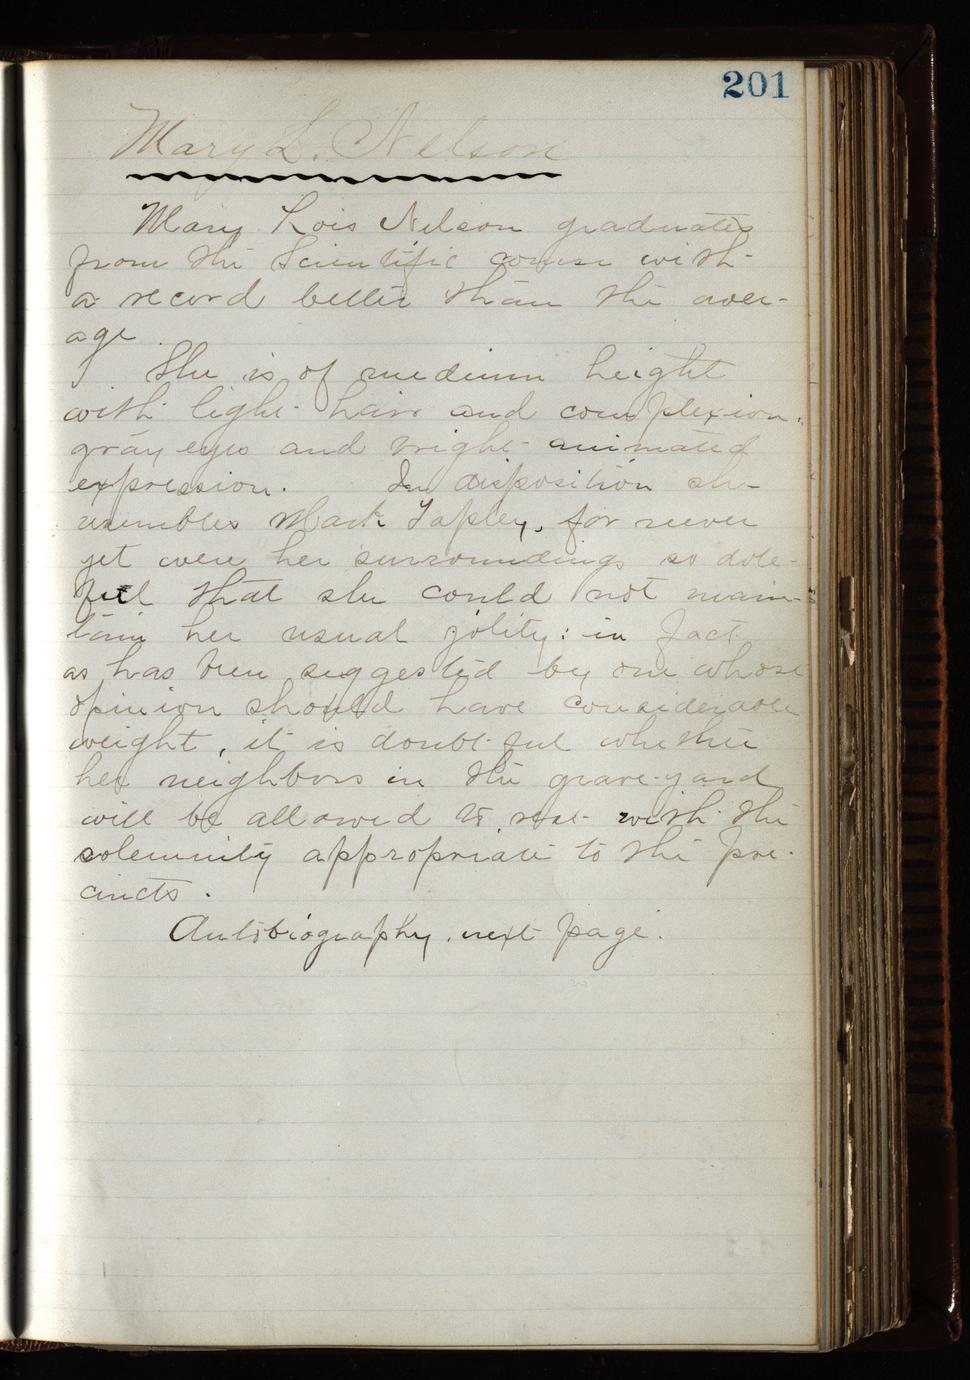 201
Mary L. Nelson
Mary Lois Nelson graduates
from the Scientific course with
a record better than the aver-
age
She is of medium height
with light hair and complexion,
gray eyes and bright animated
expression. In disposition she
resembles Mark Tapley, for never
yet were her surroundings so dole-
ful that she could not main-
tain her usual jolity: in fact
as has been suggested by one whose
opinion should have considerable
weight, it is doubtful whether
her neighbors in the grave-yard
will be allowed to rest with the
solemnity appropriate to the pre-
cincts.
Autobiography, next page.